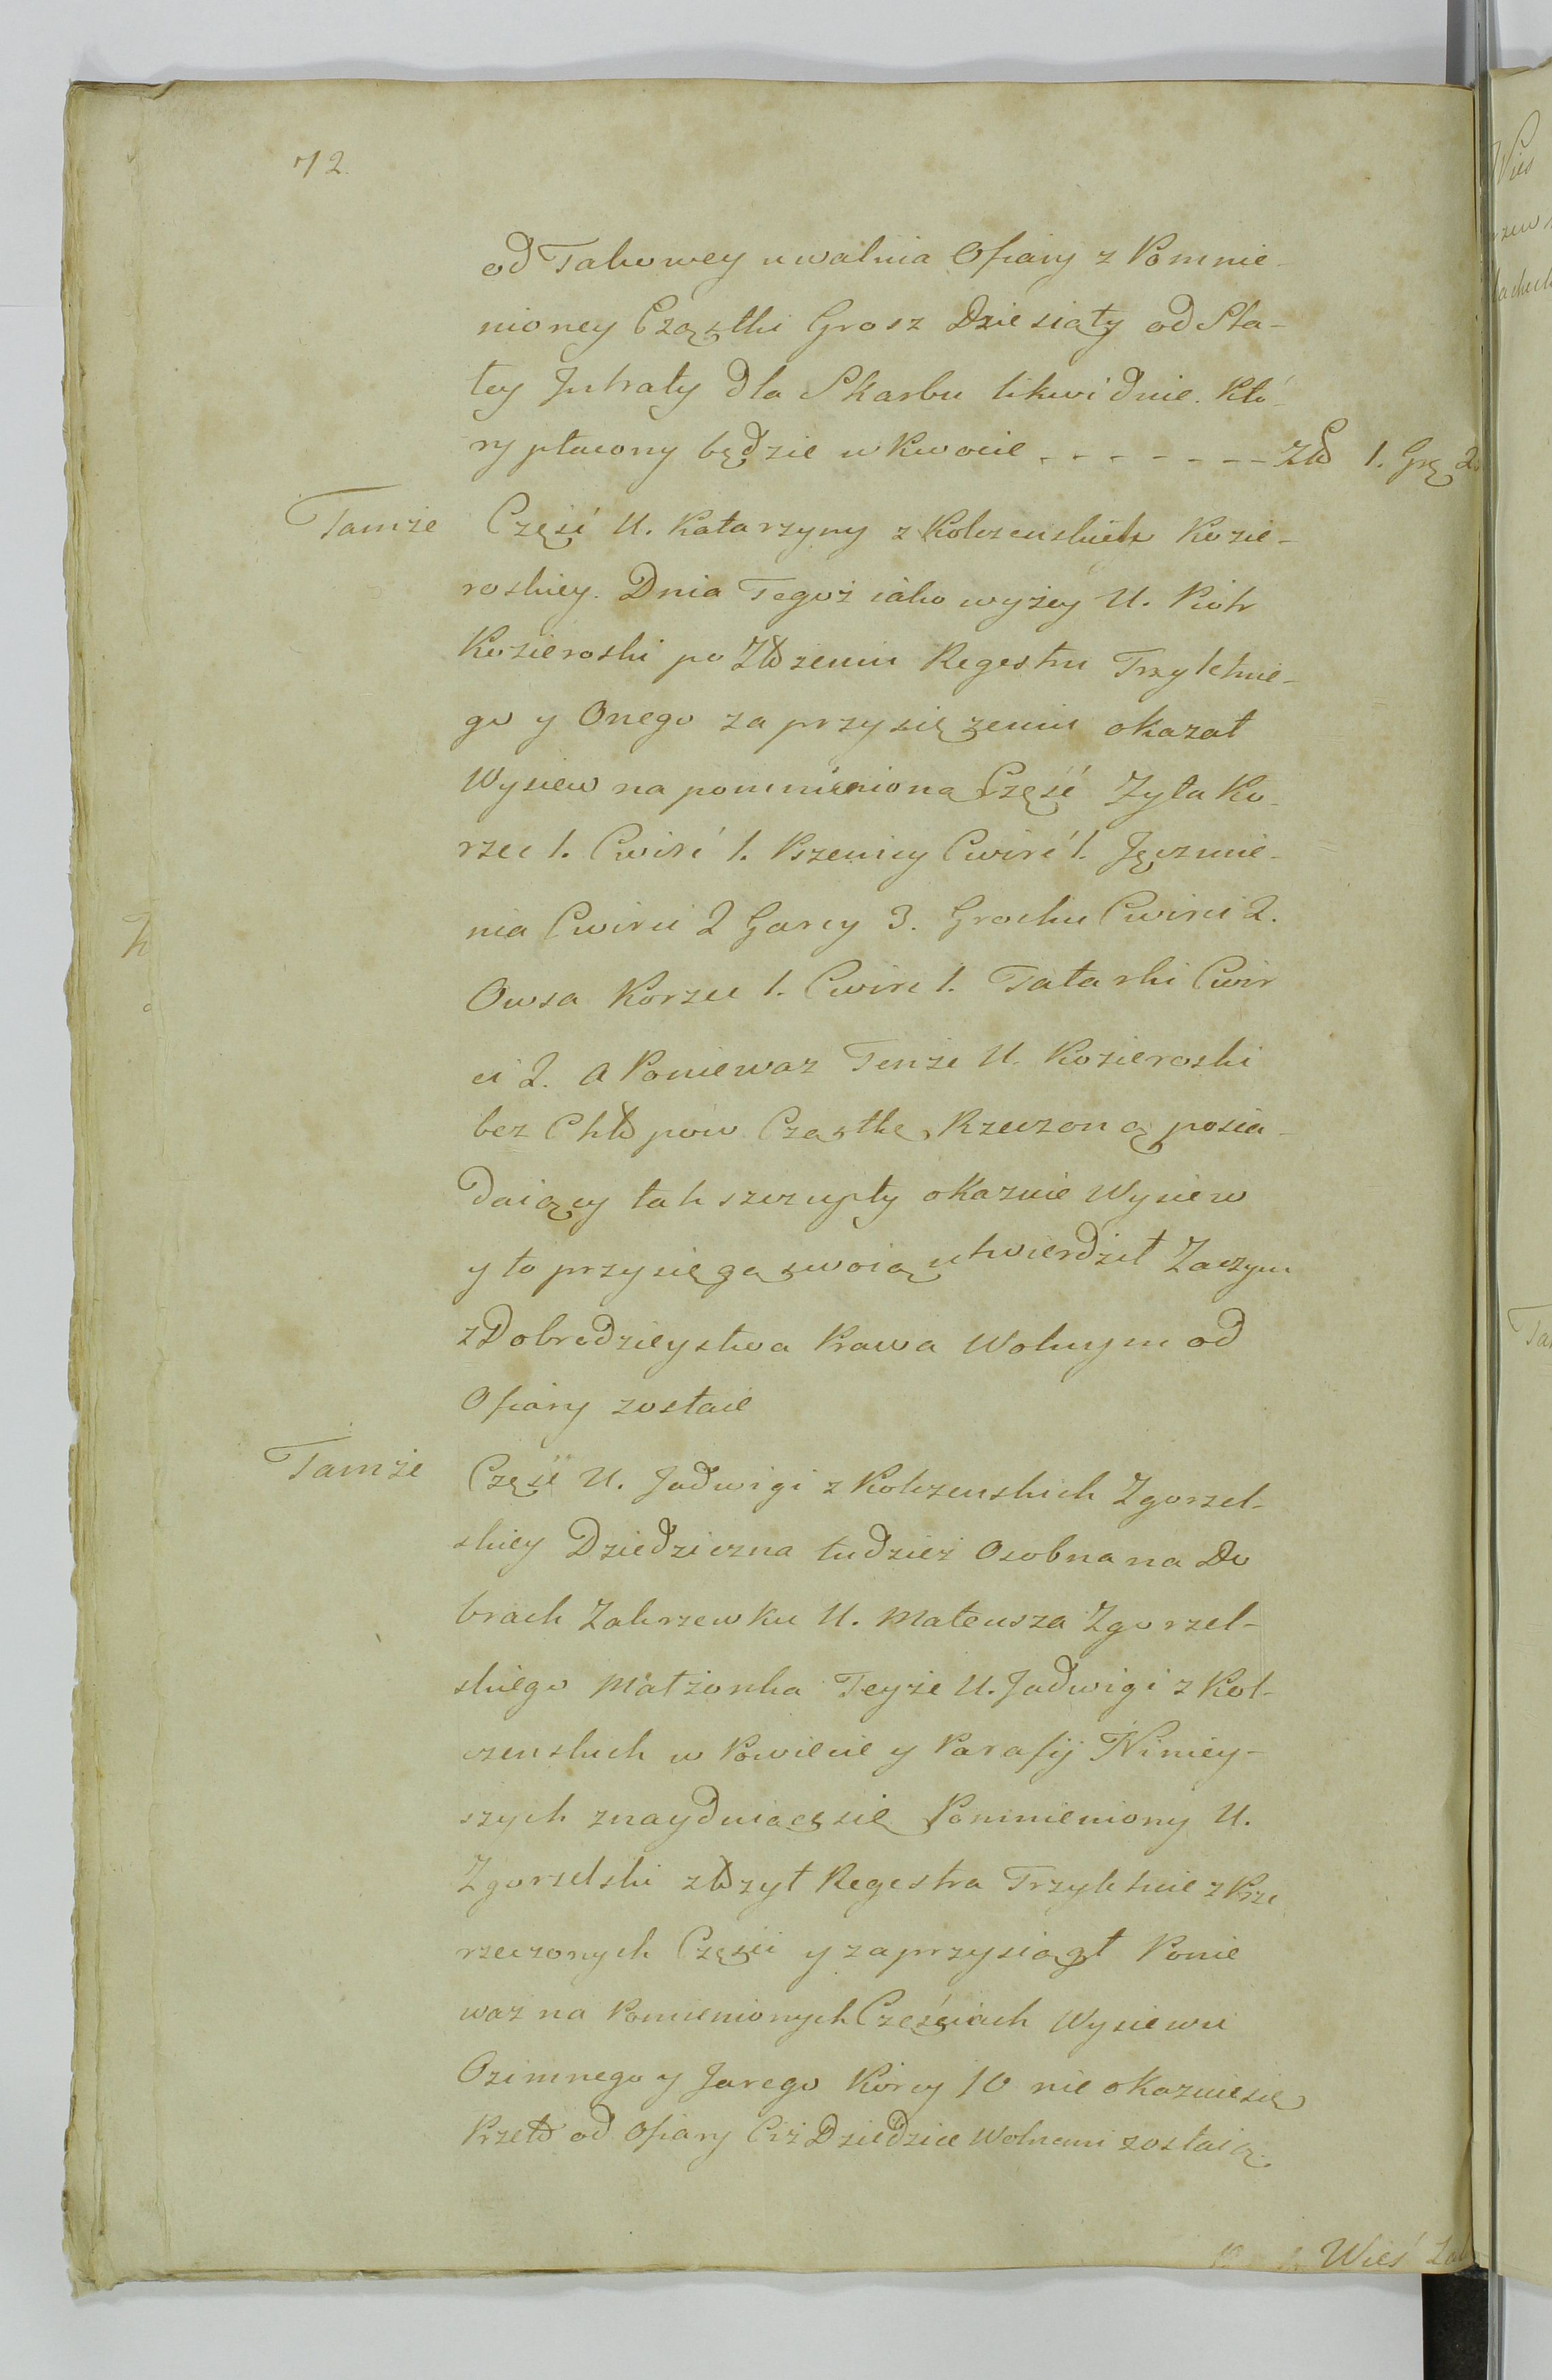 72.
od Takowey uwalnia Ofiary z Pomnie-
nioney Cząstki Grosz Dziesiąty od Sta-
tey Intraty dla Skarbu likwiduie. Któ-
ry płacony będzie w Kwocie - - - - - - - Zło 1. Grę 2
Tamże Część U. Katarzyny z Kolczenskich Kozie-
roskiey. Dnia Tegoż iako wyżey U. Piotr
Kozieroski po Złożeniu Regestru Trzyletnie-
go y Onego zaprzysiężeniu okazał
Wysiew na pomnienioną Część Zyta Ko-
rzec 1. Cwierć 1. Pszenicy Cwierć 1. Jęczmie-
nia Cwierci 2 Garcy 3. Grochu Cwierci 2.
Owsa Korzec 1. Cwierc 1. Tatarki Cwir
ci 2. a Poniewaz Tenże U. Kozieroski
bez Chłopow Cząstkę Rzeczoną posia-
daiący tak szczupły okazuie Wysiew
y to przysięgą swoią utwierdził Zaczym
z Dobrodzieystwa Prawa Wolnym od
Ofiary zostaie
Tamże Część U. Jadwigi z Kolczenskich Zgorzel-
skiey Dziedziczna tudzież Osobna na Do
brach Zakrzewku U. Mateusza Zgorzel-
skiego Małżonka Teyże U. Jadwigi z Kol-
czenskich w Powiecie y Parafij Niniey-
szych znayduiące się Pomnieniony U.
Zgorzelski złożył Regestra Trzyletnie z Prze
rzeczonych Części y zaprzysiągł Ponie
waz na Pomienionych Częściach Wysiewu
Ozimnego y Jarego Korcy 10 nie okazuie się
Przeto od Ofiary Ciż Dziedzice Wolnemi zostaią.
Wieś